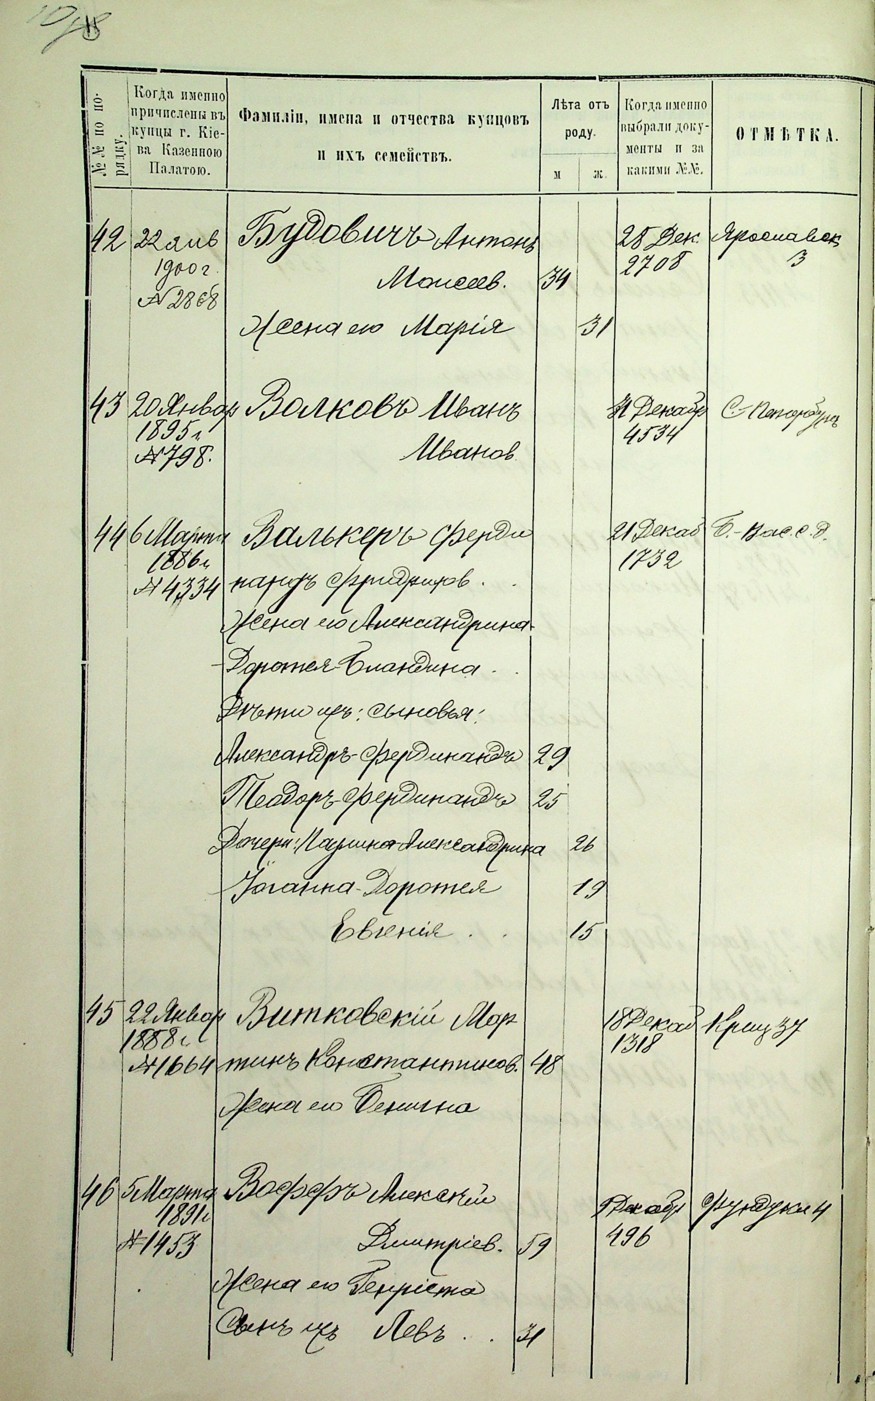 №№ по по-
рядку.
Когда именно
причислены въ
купцы г. Кіе-
ва Казенною
Палатою.
Фамиліи, имена и отчества купцовъ
и ихъ семействъ.
Лѣта отъ
роду.
м
ж.
Когда именно
выбрали доку-
менты и за
какими №№.
ОТМѢТКА.
42 22 янв Будовичъ Антонъ 28 Дек. Ярославск
1900 г Моисеев. 34 2708 3
N 2868
Жена его Марія 31
43 20 Январ Волковъ Иванъ 31 Декабр С-Петербург
1895 г Иванов 4534
N 798.
44 6 Марта Валькеръ Ферди 21 Декаб Б.-Вас. с. д.
1886 г 1732
N 4334 нандъ Фридрихов.
Жена его Александрина-
-Доротея-Бландина
Дѣти ихъ: сыновья:
Александръ-Фердинандъ 29
Теодоръ-Фердинандъ 25
Дочери: Паулина-Александрина 26
Іоганна-Доротея 19
Евгенія 15
45 22 Январ Витковскій Мар 18 Декаб Крещ 37
1888 г 1318
N 1664 тинъ Константинов. 48
Жена его Бенигна
46 5 Марта Воффъ Алексѣй Декабр Фундукл 4
1891 г
N 1453 Дмитріев. 59 496
Жена его Генріета
Сынъ ихъ Левъ 31